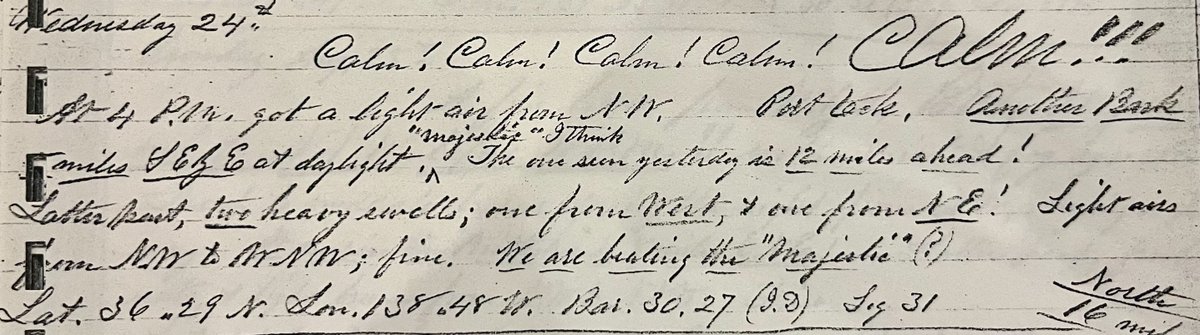 Wednesday 24th
Calm! Calm! Calm! Calm! Calm!!!
At 4 P.M. got a light air from N.W. Port tack. Another Bark
"Majestic" I think
7 miles SE by E at daylight, ^ The one seen yesterday is 12 miles ahead!
Latter part, two heavy swells; one from West, & one from N E! Light airs
from NW to WNW; fine. We are beating the "Majestic" (?)
Lat. 36 " 29 N. Lon. 138 " 48 W. Bar. 30.27 (I.D) Log 31
North
16 mil